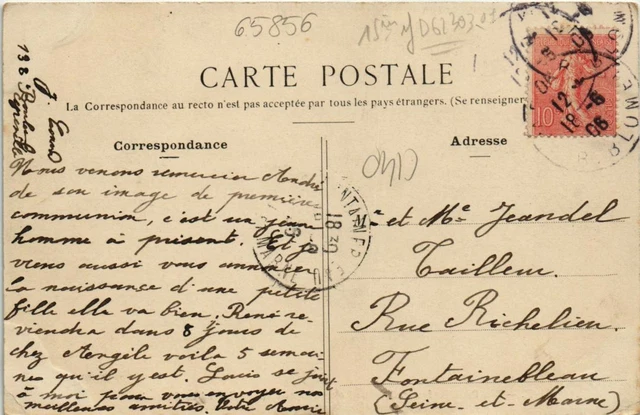 65856
15
CARTE POSTALE
La Correspondance au recto n'est pas acceptée par tous les pays étrangers. (Se renseigner
Correspondance
Nous venons remercier André
de son image de première
communion, c'est un jeune
homme à présent. Et je
viens aussi vous annoncer
la naissance d'une petite
fille ella va bien. René re-
viendra dans 8 jours de
chez Angèle voila 5 semai-
nes qu'il y est. Louis se joint
à moi pour vous envoyer nos
meilleures amitiés. Votre
Adresse
et Me Jeandel
Tailleur.
Rue Richelieu.
Fontainebleau
(Seine et Marne)
10
12
18-6
06
18 30